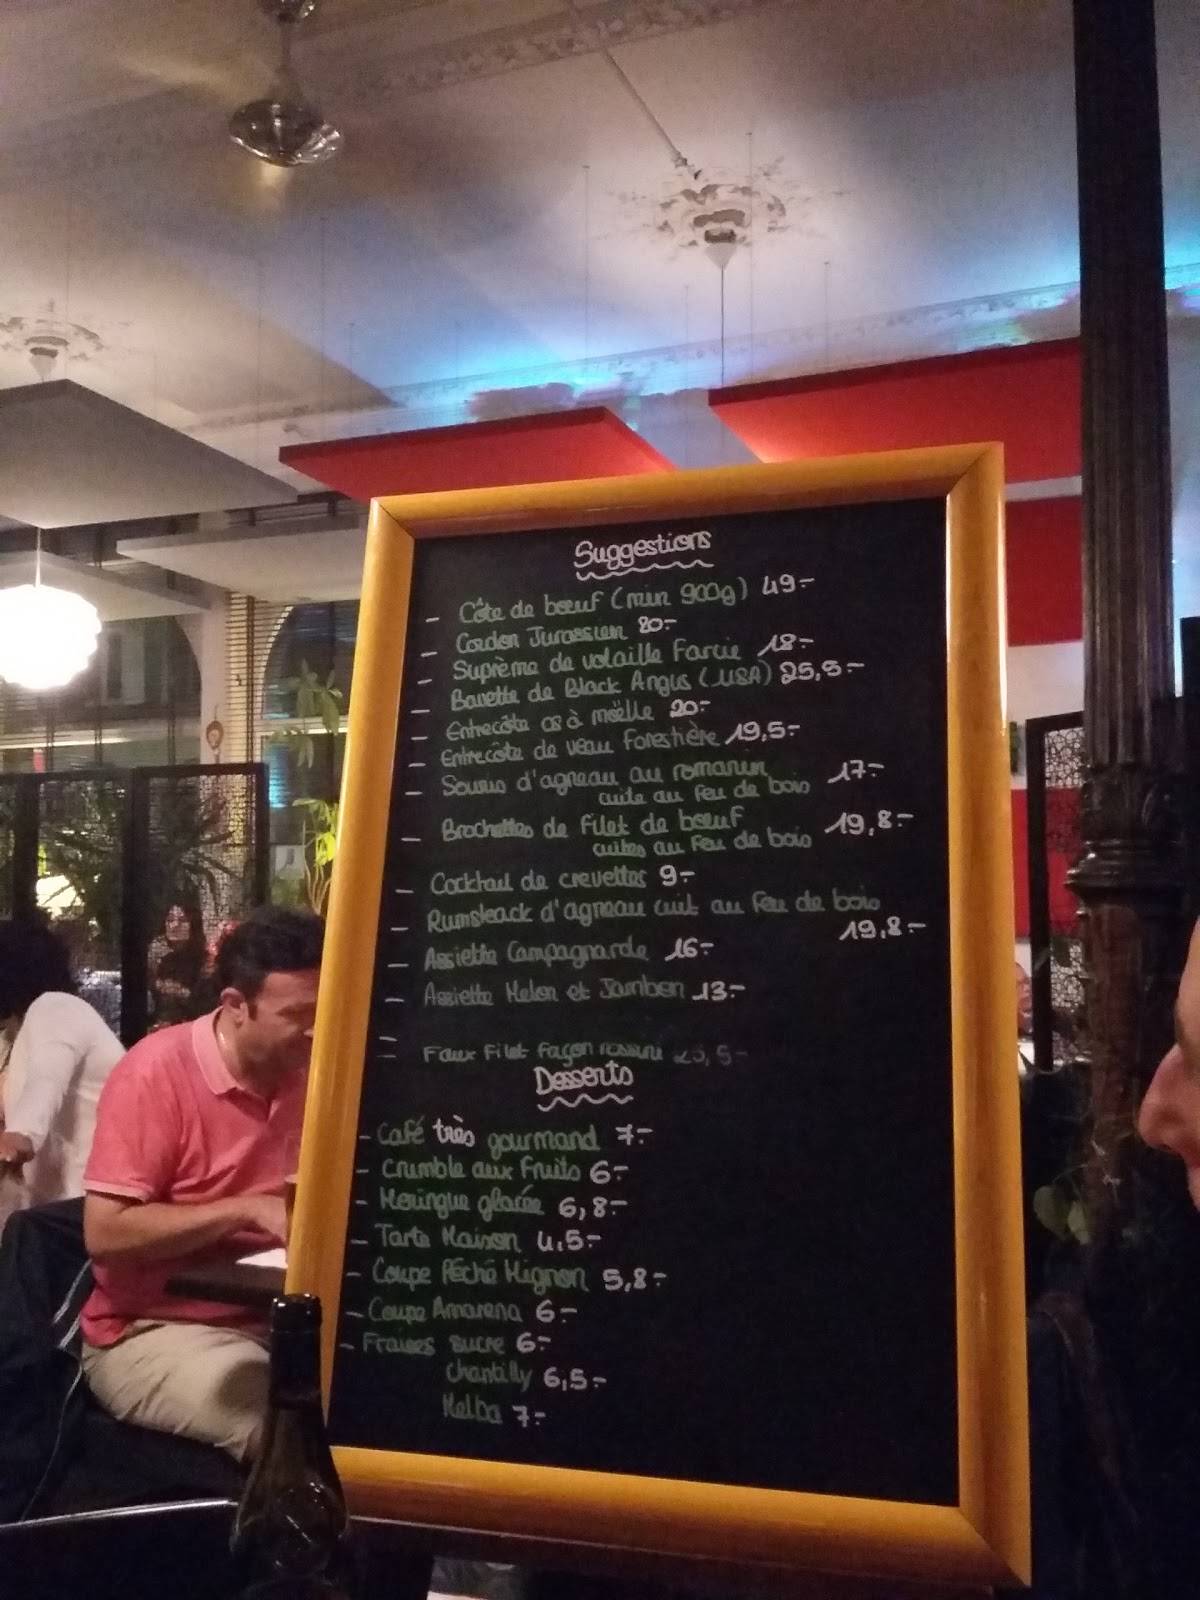 Suggestions
- Côte de bœuf (min 900g) 49.-
- Cordon Jurassien 20.-
- Suprème de volaille Farcie 18.-
- Bavette de Black Angus (USA) 25,5.-
- Entrecôte os à mœlle 20.-
- Entrecôte de veau Forestière 19,5.-
- Souris d'agneau au romarin 17.-
cuite au feu de bois
- Brochettes de filet de bœuf 19,8.-
cuites au feu de bois
- Cocktail de crevettes 9.-
- Rumsteack d'agneau cuit au feu de bois
19,8.-
- Assiette Campagnarde 16.-
- Assiette Melon et Jambon 13.-
- Faux Filet façon rossini
Desserts
- Café très gourmand 7.-
- Crumble aux Fruits 6.-
- Meringue glacée 6,8.-
- Tarte Maison 4.5.-
- Coupe Péché Mignon 5,8.-
- Coupe Amarena 6.-
- Fraises sucre 6.-
Chantilly 6,5.-
Melba 7.-